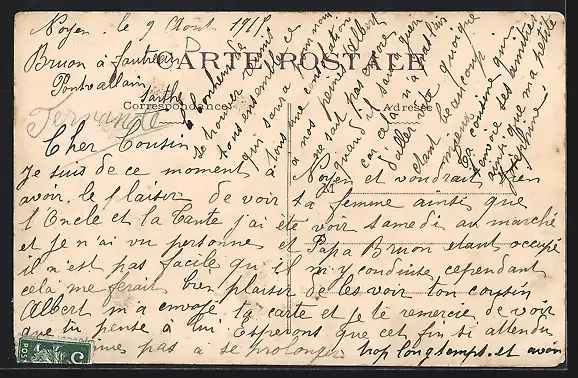 Noyen, le 9 Août 1915
Bruon à Gautreau
Pontvallain
Sarthe
CARTE POSTALE
Correspondance
Adresse
Fernande
Cher Cousin
Je suis de ce moment, à Noyen et voudrait bien
avoir, le plaisir de voir ta femme ainsi que
l'Oncle et la Tante j'ai été voir samedi au marché
et je n'ai vu personne et Papa Bruon étant occupé
il n'est pas facile qu'il m'y conduise, cependant
cela me ferait bien plaisir de les voir ton cousin
Albert m'a envoyé ta carte et je te remercie de voir
que tu pense à lui. Espérons que cet, fin si attendu
pas à se prolonger trop longtemps. et avoir
le bonheur de
se trouver réunit
tous ensemble ce
qui sera pour nous
tous une consolation
à nos peines Albert
ne sait pas encore
quand il sera guéri
car il n'a pas
d'aller quoique
étant beaucoup
mieux
Ta cousine qui
t'envoie ses amitiés
ainsi que ma petite
Joséphine
5
POST